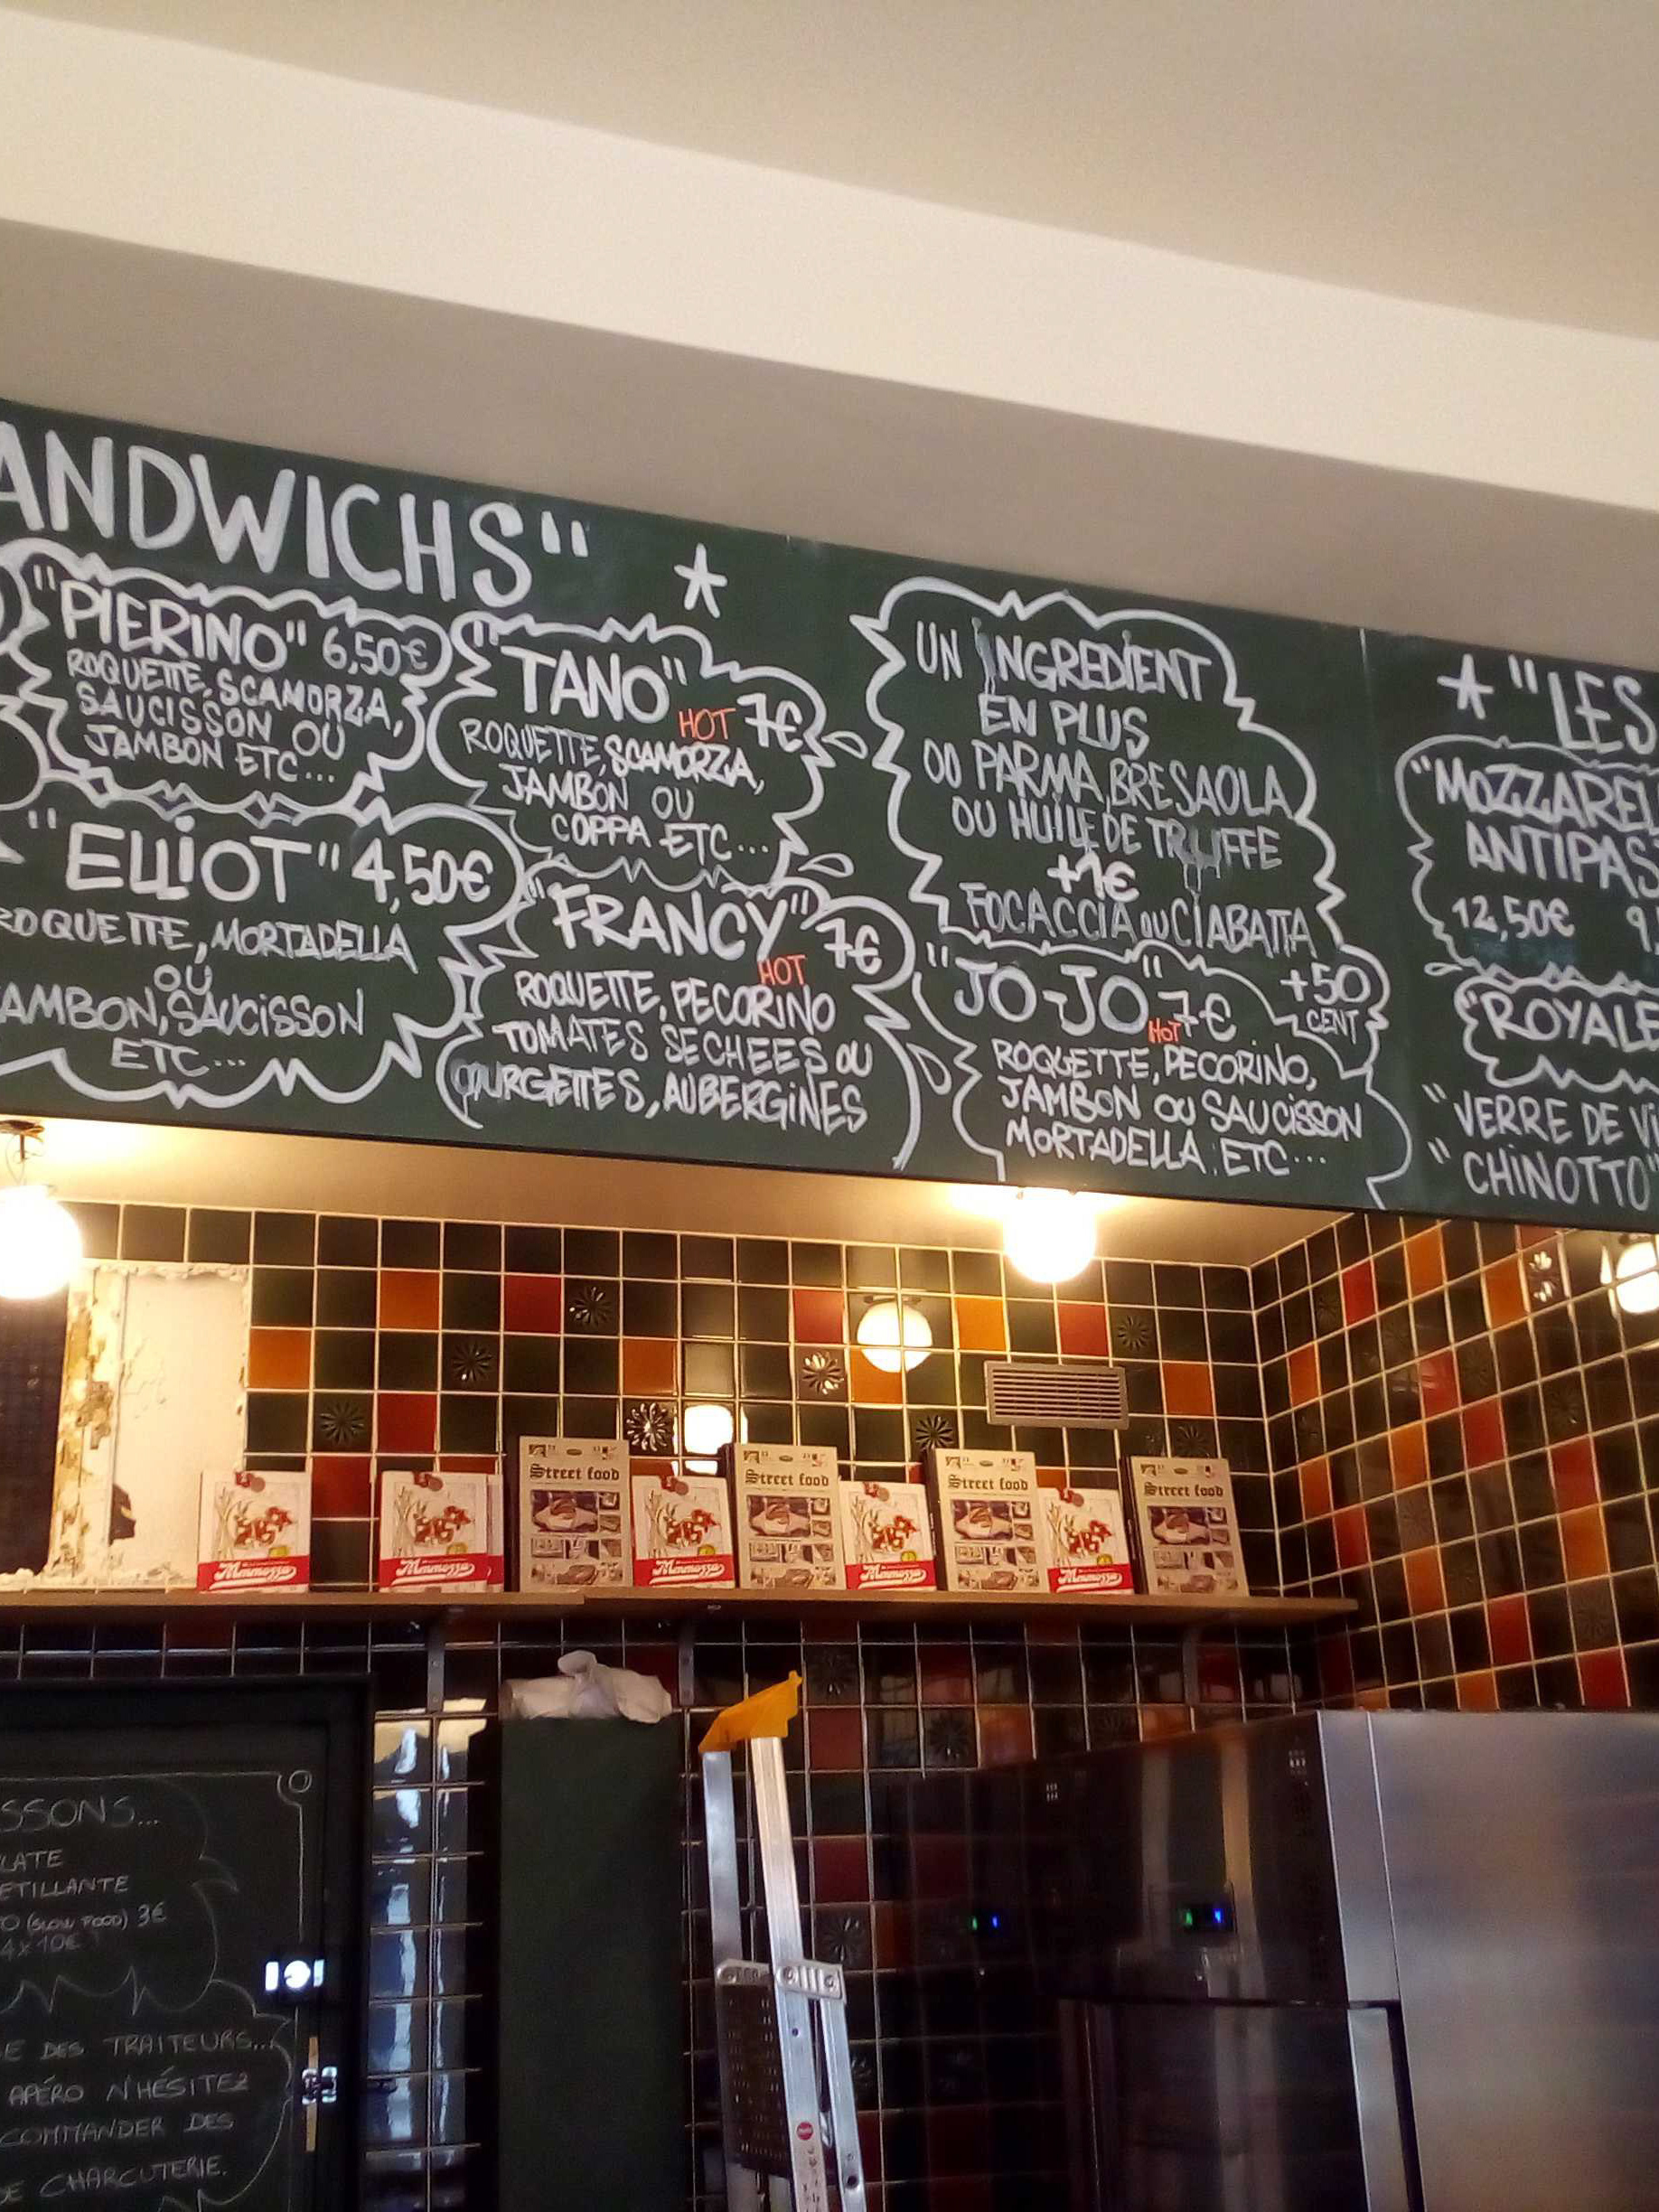 ANDWICHS"
"PIERINO" 6,50€
ROQUETTE, SCAMORZA,
SAUCISSON OU
JAMBON ETC...
"TANO"
HOT 7€
ROQUETTE, SCAMORZA,
JAMBON OU
COPPA ETC...
"ELLIOT" 4,50€
ROQUETTE, MORTADELLA
OU
AMBON, SAUCISSON
ETC...
"FRANCY" 7€
HOT
ROQUETTE, PECORINO
TOMATES SECHEES OU
COURGETTES, AUBERGINES
UN INGREDIENT
EN PLUS
OU PARMA, BRESAOLA
OU HUILE DE TRUFFE
+1€
FOCACCIA OU CIABATTA
+50
CENT
"JO-JO" 7€
HOT
ROQUETTE, PECORINO,
JAMBON OU SAUCISSON
MORTADELLA, ETC...
"LES
"MOZZAREL
ANTIPAS
12,50€ 9,
"ROYALE
"VERRE DE VI
"CHINOTTO"
Street food
Street food
Street food
Street food
Mmmozza
Mmmozza
Mmmozza
Mmmozza
Mmmozza
SSONS...
LATE
ETILLANTE
TO (SLOW FOOD) 3€
4x10€
E DES TRAITEURS...
APÉRO N'HÉSITEZ
COMMANDER DES
DE CHARCUTERIE.